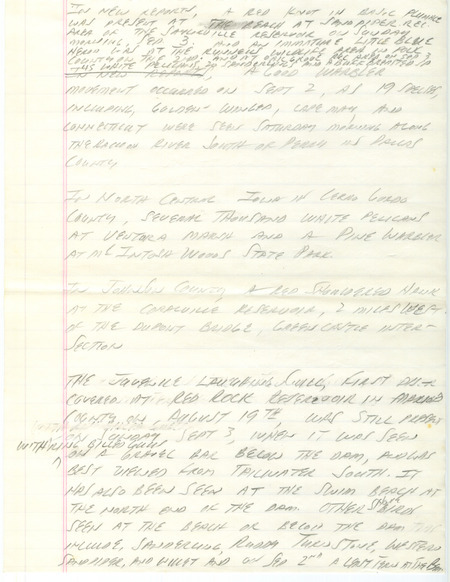 IN NEW REPORTS, A RED KNOT IN BASIC PLUMAGE
WAS PRESENT AT THE BEACH AT SANDPIPER REC.
AREA OF THE SAYLORVILLE RESERVOIR ON SUNDAY
MORNING, SEP 3, AND AN IMMATURE LITTLE BLUE
HERON WAS AT THE RUNNELLS WILDLIFE AREA IN POLK
COUNTY
A GOOD WARBLER
MOVEMENT OCCURRED ON SEPT 2, AS 19 SPECIES,
INCLUDING, GOLDEN-WINGED, CAPE MAY, AND
CONNECTICUT WERE SEEN SATURDAY MORNING ALONG
THE RACCOON RIVER SOUTH OF PERRY IN DALLAS
COUNTY.
IN NORTH CENTRAL IOWA IN CERRO GORDO
COUNTY, SEVERAL THOUSAND WHITE PELICANS
AT VENTURA MARSH AND A PINE WARBLER
AT MC INTOSH WOODS STATE PARK.
IN JOHNSON COUNTY, A RED SHOULDERED HAWK
AT THE CORALVILLE RESERVOIR, 2 MILES WEST
OF THE DUPONT BRIDGE, GREENCASTLE INTER-
SECTION
THE JUVENILE LAUGHING GULL, FIRST DIS-
COVERED AT RED ROCK RESERVOIR IN MARION
COUNTY ON AUGUST 19TH, WAS STILL PRESENT
ON SUNDAY SEPT 3, WHEN IT WAS SEEN
WITH RING BILLED GULLS
ON A GRAVEL BAR BELOW THE DAM, AND WAS
BEST VIEWED FROM TAILWATER SOUTH. IT
HAS ALSO BEEN SEEN AT THE SWIM BEACH AT
THE NORTH END OF THE DAM. OTHER SHOREBIRDS
SEEN AT THE BEACH OR BELOW THE DAM
INCLUDE, SANDERLING, RUDDY TURNSTONE, WESTERN
SANDPIPER, AND WILLET AND ON SEP 2ND A LEAST TERN